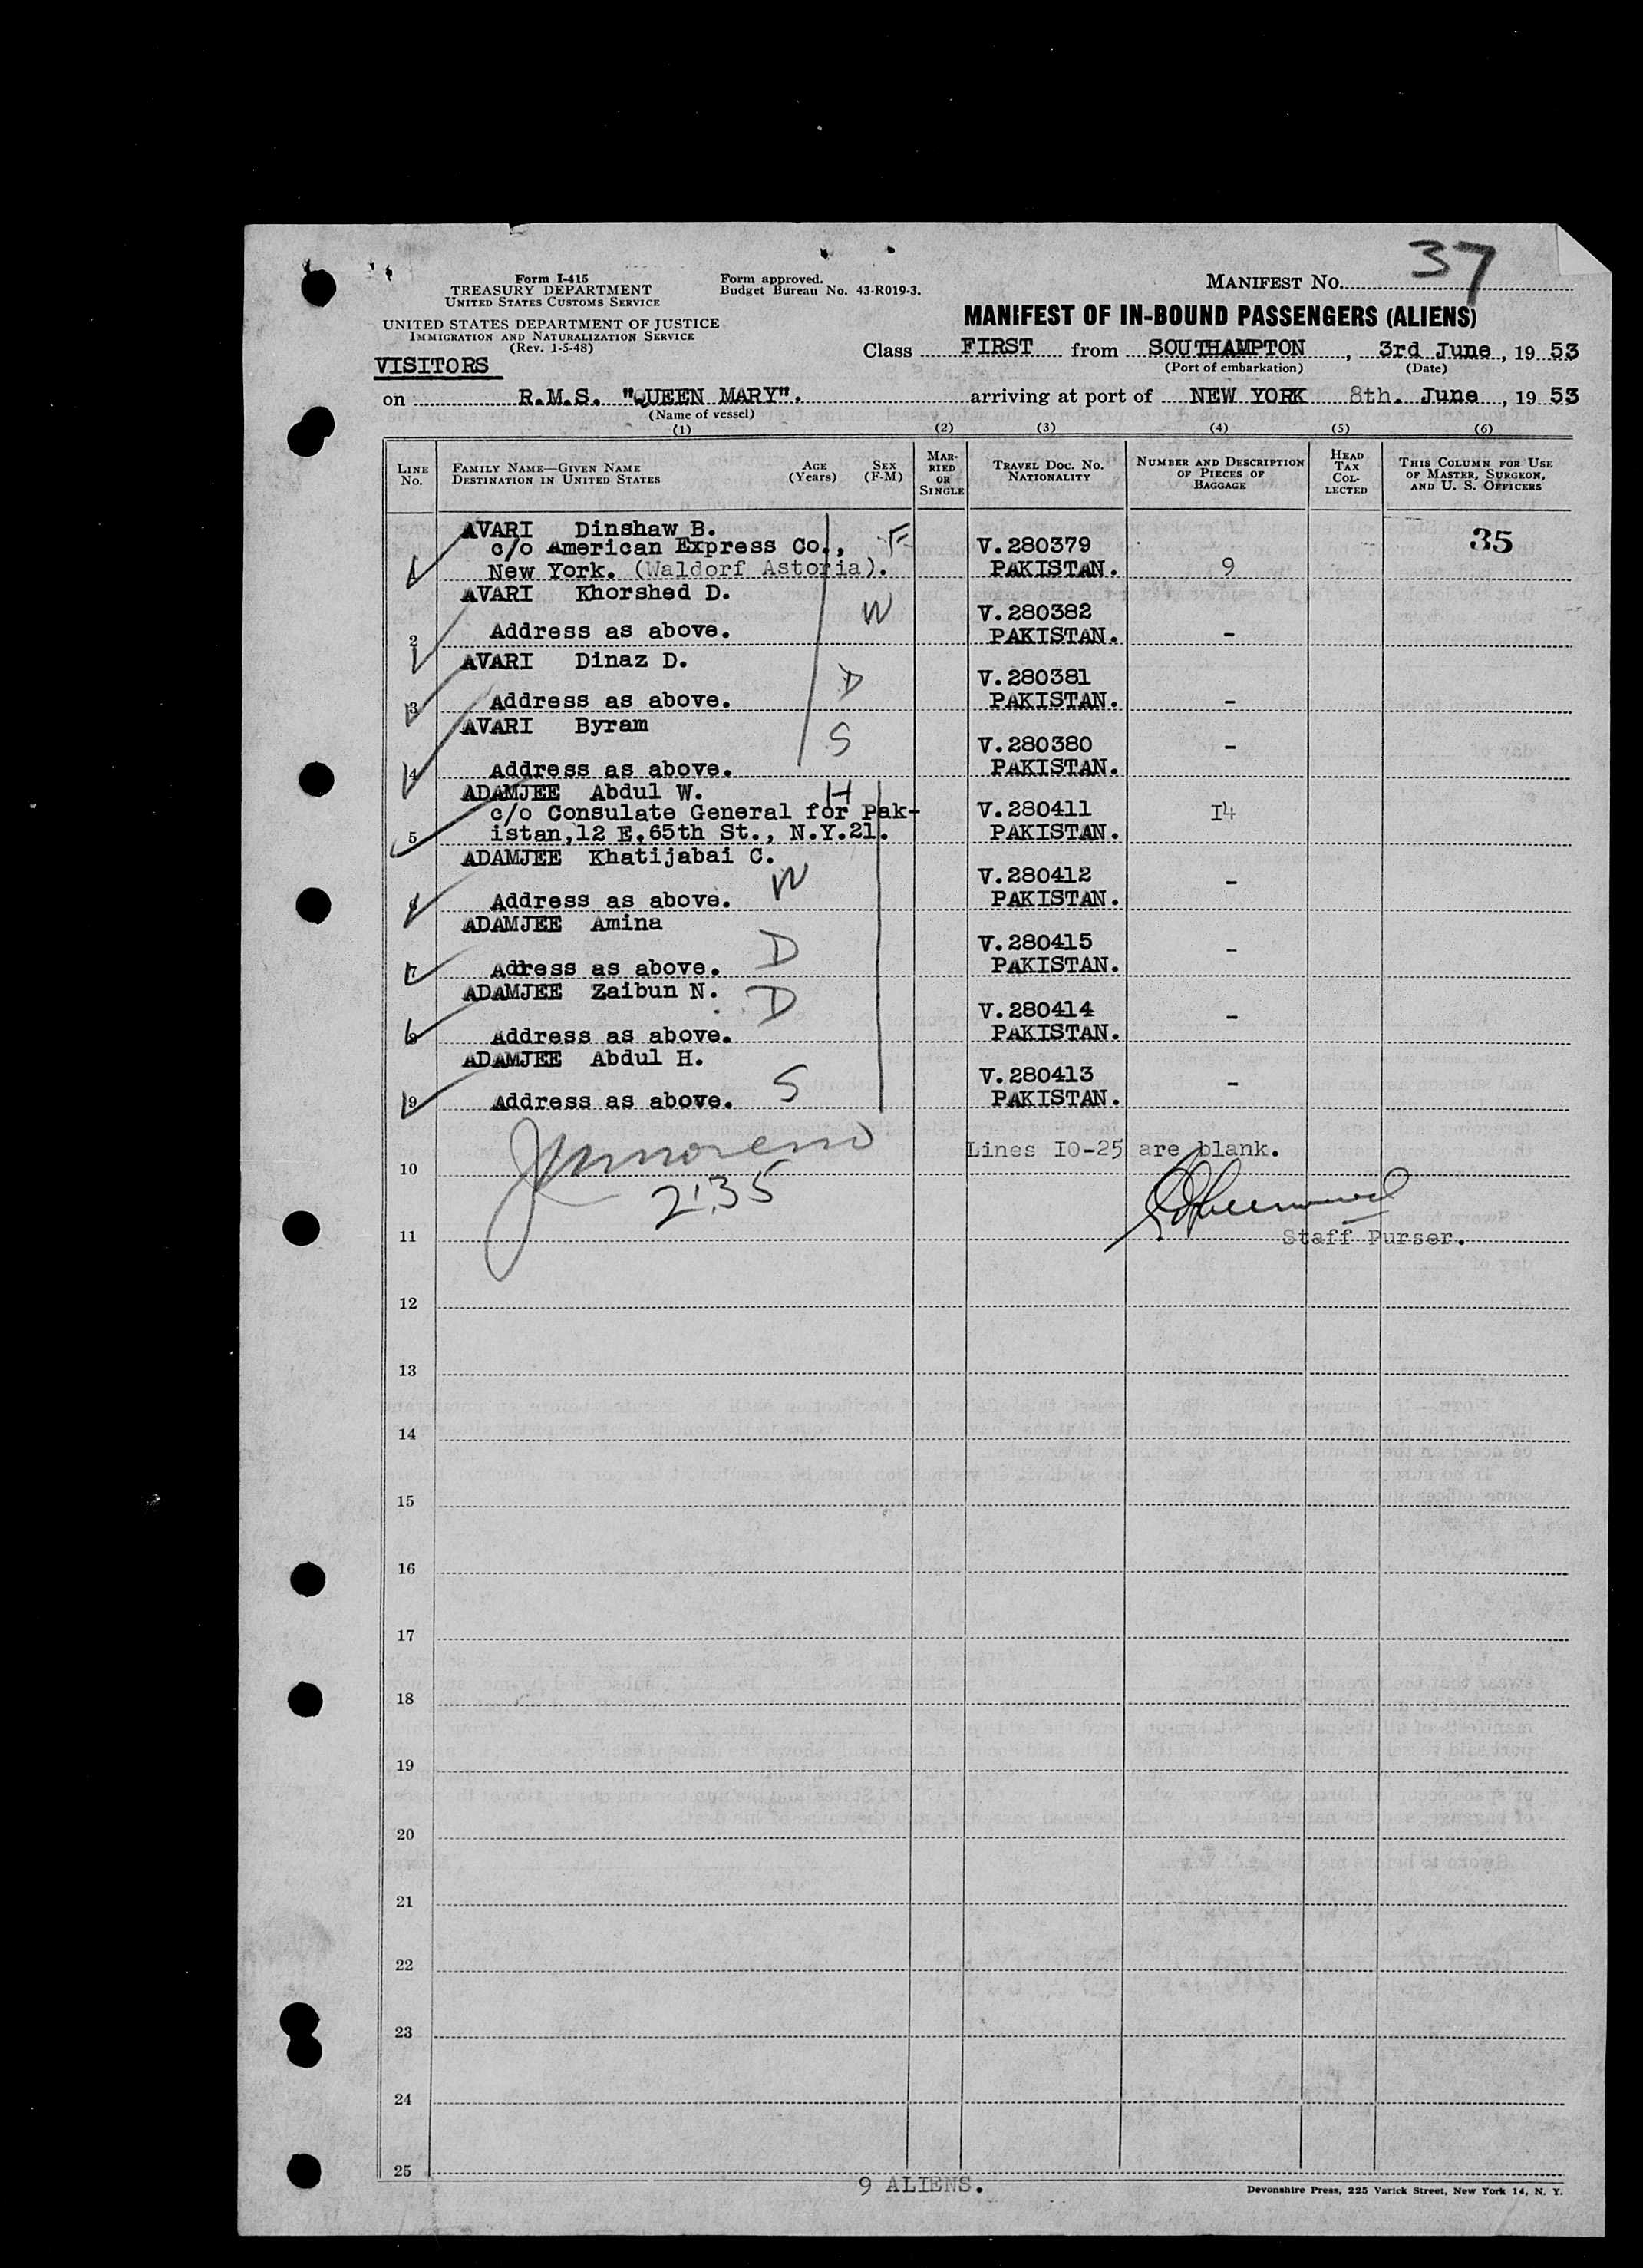 37
Form I-415
TREASURY DEPARTMENT
UNITED STATES CUSTOMS SERVICE
Form approved.
Budget Bureau No. 43-R019-3.
MANIFEST NO.
UNITED STATES DEPARTMENT OF JUSTICE
IMMIGRATION AND NATURALIZATION SERVICE
(Rev. 1-5-48)
MANIFEST OF IN-BOUND PASSENGERS (ALIENS)
VISITORS
Class FIRST from SOUTHAMPTON, 3rd June, 19 53
(Port of embarkation) (Date)
on R.M.S. "QUEEN MARY". arriving at port of NEW YORK 8th. June, 19 53
(Name of vessel)
(1) (2) (3) (4) (5) (6)
LINE NO. FAMILY NAME—GIVEN NAME DESTINATION IN UNITED STATES AGE (Years) SEX (F-M) MARRIED OR SINGLE TRAVEL DOC. NO. NATIONALITY NUMBER AND DESCRIPTION OF PIECES OF BAGGAGE HEAD TAX COLLECTED THIS COLUMN FOR USE OF MASTER, SURGEON, AND U. S. OFFICERS
AVARI Dinshaw B. 35
c/o American Express Co., F V.280379
New York. (Waldorf Astoria). PAKISTAN. 9
AVARI Khorshed D. W V.280382
2 Address as above. PAKISTAN. -
AVARI Dinaz D. D V.280381
3 Address as above. PAKISTAN. -
AVARI Byram S V.280380 -
4 Address as above. PAKISTAN.
ADAMJEE Abdul W. H
c/o Consulate General for Pak- V.280411 14
5 istan,12 E.65th St., N.Y.21. PAKISTAN.
ADAMJEE Khatijabai C. W V.280412 -
6 Address as above. PAKISTAN.
ADAMJEE Amina D V.280415 -
7 Address as above. PAKISTAN.
ADAMJEE Zaibun N. D V.280414 -
8 Address as above. PAKISTAN.
ADAMJEE Abdul H. S V.280413 -
9 Address as above. PAKISTAN.
Lines 10-25 are blank.
10
2:35
11 Staff Purser.
12
13
14
15
16
17
18
19
20
21
22
23
24
25
9 ALIENS.
Devonshire Press, 225 Varick Street, New York 14, N. Y.